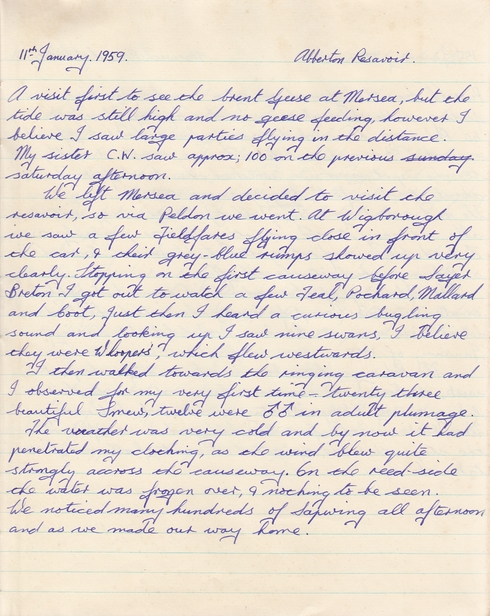 11th January. 1959. Abberton Resavoir.
A visit first to see the brent geese at Mersea, but the
tide was still high and no geese feeding, however I
believe I saw large parties flying in the distance.
My sister C.W. saw approx; 100 on the previous sunday
saturday afternoon.
We left Mersea and decided to visit the
resavoir, so via Peldon we went. At Wigborough
we saw a few Fieldfares flying close in front of
the car, & their grey-blue rumps showed up very
clearly. Stopping on the first causeway before Layer
Breton I got out to watch a few Teal, Pochard, Mallard
and Coot, just then I heard a curious bugling
sound and looking up I saw nine swans, I believe
they were Whoopers', which flew westwards.
I then walked towards the ringing caravan and
I observed for my very first time - twenty three
beautiful Smew, twelve were ♂♂ in adult plumage.
The weather was very cold and by now it had
penetrated my clothing, as the wind blew quite
strongly accross the causeway. On the reed-side
the water was frozen over, & nothing to be seen.
We noticed many hundreds of Lapwing all afternoon
and as we made our way home.